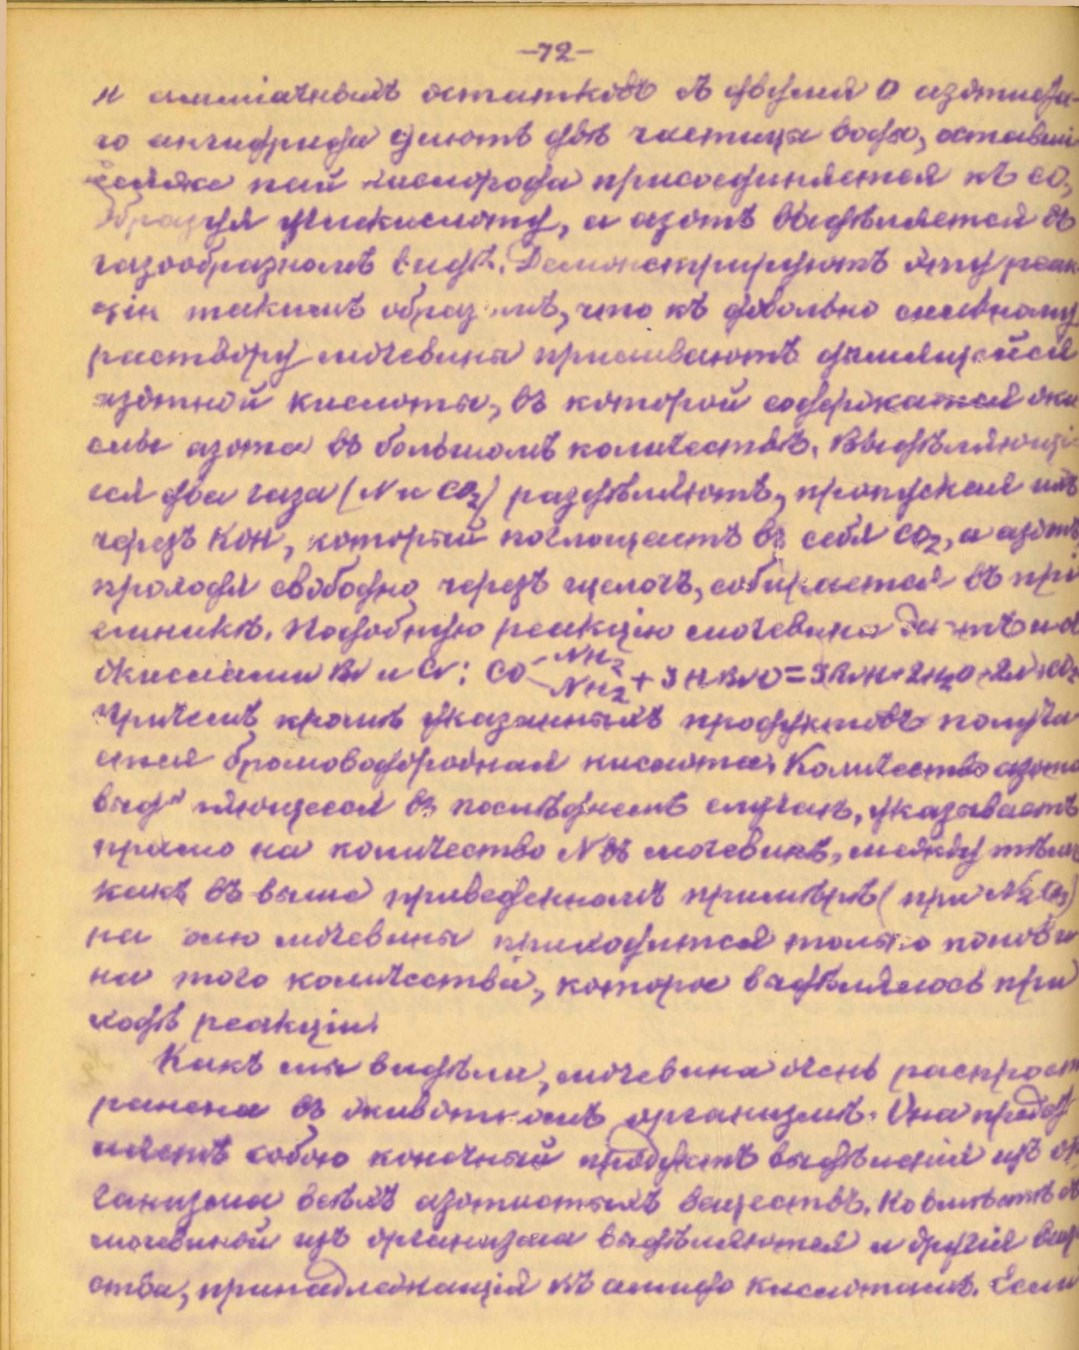 -72-
Н амміачныхъ остатковъ съ двумя О азотиста-
го ангидрида даютъ двѣ частицы воды, оставші
йся же пай кислорода присоединяется къ CO,
образуя углекислоту, а азотъ выдѣляется въ
газообразномъ видѣ. Демонстрируютъ эту реак
цію такимъ образомъ, что къ довольно сильному
раствору мочевины приливаютъ дымящейся
азотной кислоты, въ которой содержатся оки
слы азота въ большомъ количествѣ. Выдѣляющі
еся два газа (N и CO2) раздѣляютъ, пропуская ихъ
черезъ KOH, который поглощаетъ въ себя CO2, а азотъ
проходя свободно черезъ щелочь, собирается въ прі
емникѣ. Подобную реакцію мочевина даетъ и съ
окислами Br и Cl: CO-NH2-NH2 + 3HBrO = 3BrH+2H2O+2N+CO2
Причемъ кромѣ указанныхъ продуктовъ получа
ется бромоводородная кислота. Количество азота
выдѣляющееся въ послѣднемъ случаѣ, указываетъ
прямо на количество N въ мочевинѣ, между тѣмъ
какъ въ выше приведенномъ примѣрѣ (при N2O3)
на долю мочевины приходится только полови
на того количества, которое выдѣлялось при
ходѣ реакціи.
Какъ мы видѣли, мочевина очень распрост
ранена въ животномъ организмѣ. Она представ
ляетъ собою конечный продуктъ выдѣленія изъ ор
ганизма всѣхъ азотистыхъ веществъ. Но вмѣстѣ съ
мочевиной изъ организма выдѣляются и другія вещ
ства, принадлежащія къ амидо кислотамъ. Если